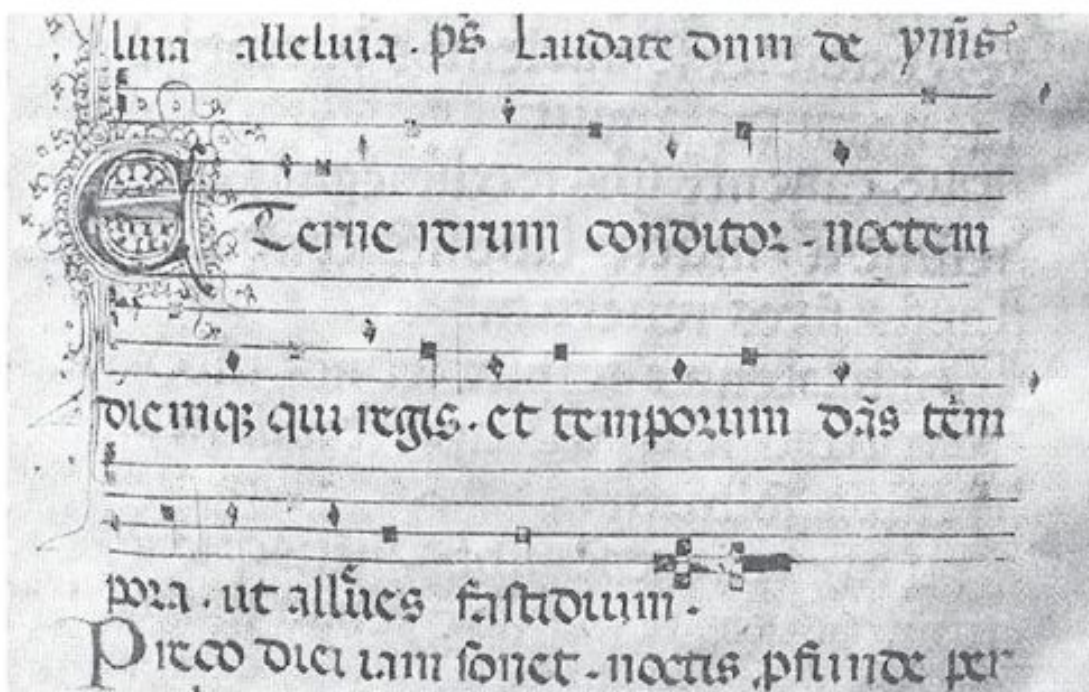 luia alleluia. ps̄ Laudate dnm de ymīs
Eterne rerum conditor. noctem
diemqꝫ qui regis. et temporum dās tēm
pora. ut alleues fastidium.
Preco diei iam sonet. noctis ꝓfunde per